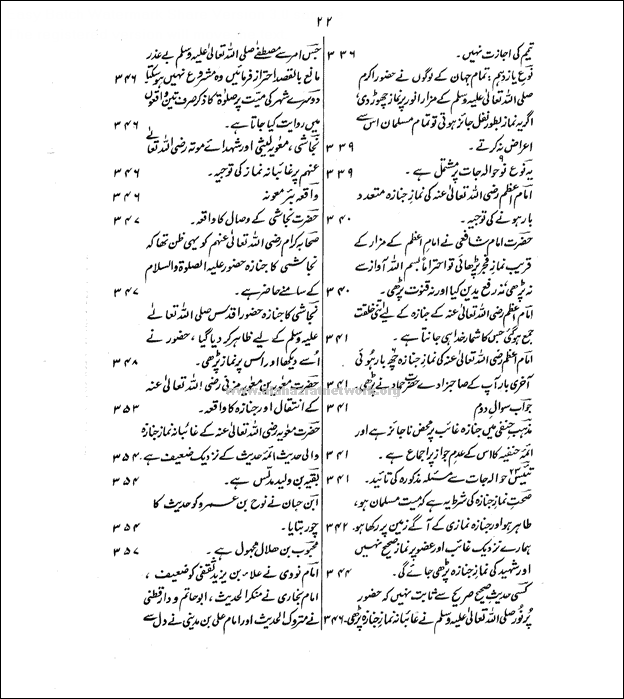 ۲۲
تیمم کی اجازت نہیں۔ ۳۳۶
نوع یازدہم، تمام جہان کے لوگوں نے حضور اکرم
صلی اللہ تعالیٰ علیہ وسلم کے مزار انور پر نماز چھوڑ دی،
اگر یہ نماز بطور نفل جائز ہوتی تو تمام مسلمان اس سے
اعراض نہ کرتے۔ ۳۳۹
یہ نوع ۹ نو حوالہ جات پر مشتمل ہے۔ ۳۳۹
امام اعظم رضی اللہ تعالیٰ عنہ کی نماز جنازہ متعدد
بار ہونے کی توجیہ۔ ۳۴۰
حضرت امام شافعی نے امام اعظم کے مزار کے
قریب نماز فجر پڑھائی تو احتراماً بسم اللہ آواز سے
نہ پڑھی نہ رفع یدین کیا اور نہ قنوت پڑھی۔ ۳۴۰
امام اعظم رضی اللہ تعالیٰ عنہ کے جنازہ کے لیے اتنی خلقت
جمع ہوگئی جس کا شمار خدا ہی جانتا ہے۔ ۳۴۱
امام اعظم رضی اللہ تعالیٰ عنہ کی نماز جنازہ چھ بار ہوئی
آخری بار آپ کے صاحبزادے حضرت حماد نے پڑھی۔ ۳۴۱
جواب سوال دوم ۳۴۱
مذہب حنفی میں جنازہ غائب پر محض ناجائز ہے اور
ائمہ حنفیہ کا اس کے عدم جواز پر اجماع ہے۔ ۳۴۱
تئیس ۲۳ حوالہ جات سے مسئلہ مذکورہ کی تائید۔ ۳۴۱
صحت نماز جنازہ کی شرط یہ ہے کہ میت مسلمان ہو،
طاہر ہو اور جنازہ نمازی کے آگے زمین پر رکھا ہو۔ ۳۴۲
ہمارے نزدیک غائب اور عضو پر نماز صحیح نہیں
اور شہید کی نماز جنازہ پڑھی جائے گی۔ ۳۴۴
کسی حدیث صحیح صریح سے ثابت نہیں کہ حضور
پُرنور صلی اللہ تعالیٰ علیہ وسلم نے غائبانہ نماز جنازہ پڑھی۔ ۳۴۶
جس امر سے مصطفےٰ صلی اللہ تعالیٰ علیہ وسلم بے عذر
مانع بالقصد احتراز فرمائیں وہ مشروع نہیں ہوسکتا ۳۴۶
دوسرے شہر کی میت پر صلوٰۃ کا ذکر صرف تین واقعوں
میں روایت کیا جاتا ہے۔ ۳۴۶
نجاشی، معٰویہ لیثی اور شہدائے موتہ رضی اللہ تعالےٰ
عنہم پر غائبانہ نماز کی توجیہ۔ ۳۴۶
واقعہ بئر معونہ ۳۴۶
حضرت نجاشی کے وصال کا واقعہ۔ ۳۴۷
صحابہ کرام رضی اللہ تعالیٰ عنہم کو یہی ظن تھا کہ
نجاشی کا جنازہ حضور علیہ الصلوٰۃ والسلام
کے سامنے حاضر ہے۔ ۳۴۷
نجاشی کا جنازہ حضور اقدس صلی اللہ تعالےٰ
علیہ وسلم کے لیے ظاہر کر دیا گیا، حضور نے
اُسے دیکھا اور اس پر نماز پڑھی۔ ۳۴۸
حضرت معٰویہ بن معٰویہ مزنی رضی اللہ تعالیٰ عنہ
کے انتقال اور جنازہ کا واقعہ۔ ۳۵۳
حضرت معٰویہ رضی اللہ تعالیٰ عنہ کے غائبانہ نماز جنازہ
والی حدیث ائمہ حدیث کے نزدیک ضعیف ہے۔ ۳۵۴
بقیہ بن ولید مدلس ہے۔ ۳۵۴
ابن حبان نے نوح بن عمرو کو حدیث کا
چور بتایا۔ ۳۵۴
محبوب بن ھلال مجہول ہے۔ ۳۵۷
امام نووی نے علاء بن یزید ثقفی کو ضعیف،
امام بخاری نے منکر الحدیث، ابوحاتم و دارقطنی
نے متروک الحدیث اور امام علی بن مدینی نے دل سے